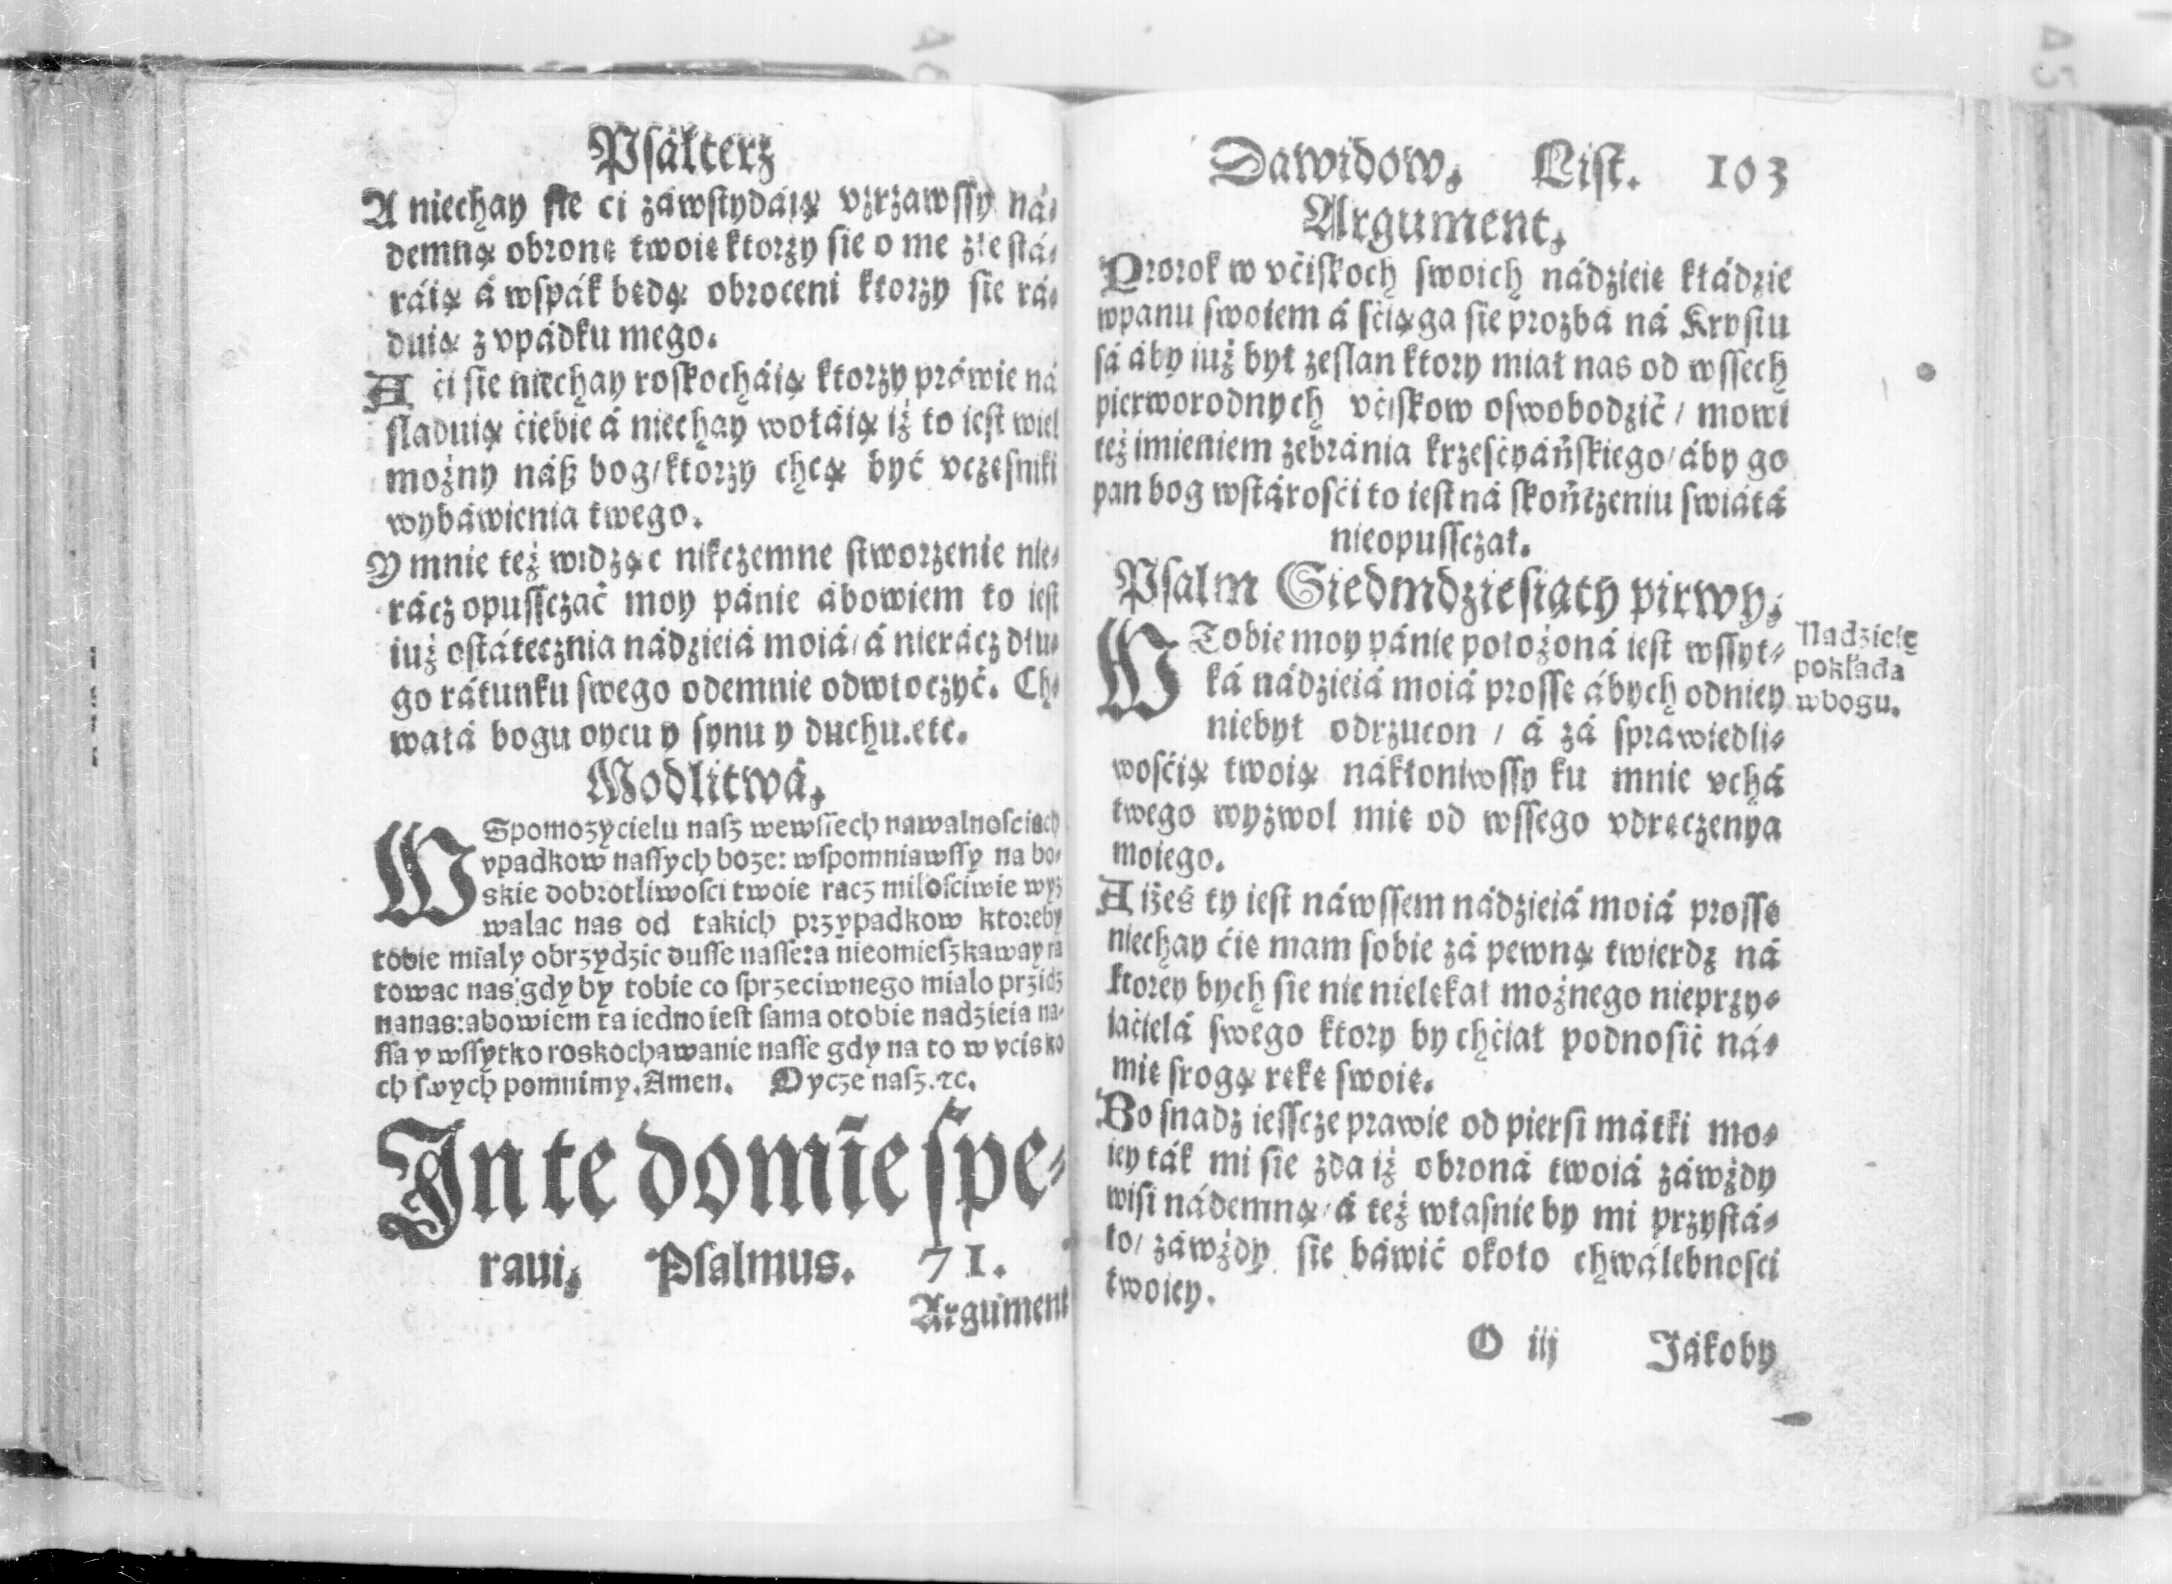 Psálterz
A niechay sie ci záwstydáią vzrzawssy ná-
demną obronę twoię ktorzy sie o me złe stá-
ráią á wspák będą obroceni ktorzy sie rá-
duią z vpádku mego.
A ći sie niechay roskocháią ktorzy práwie ná
sladuią ćiebie á niechay wołáią iż to iest wiel
możny náß bog/ ktorzy chcą być vczęsniki
wybáwienia twego.
Y mnie też widząc nikczemne stworzenie nie-
rácz opussczáć moy pánie ábowiem to iest
iuż ostátecznia nádzieiá moiá/ á nierácz dłu-
go rátunku swego odemnie odwłoczyć. Ch-
wałá bogu oycu y synu y duchu.etc.
Modlitwá.
WSpomozycielu nasz wewssech nawalnosciach
vpadkow nassych boze: wspomniawssy na bo-
skie dobrotliwosci twoie racz milosciwie wyz
walac nas od takich przypadkow ktoreby
tobie mialy obrzydzic dusse nasse:a nieomieszkaway ra
towac nas gdy by tobie co sprzeciwnego mialo przidz
nanas:abowiem ta iedno iest sama otobie nadzieia na-
ssa y wssytko roskochawanie nasse gdy na to w vcisko
ch swych pomnimy.Amen. Oycze nasz.⁊c.
In te domīe spe-
raui. Psalmus. 71.
Argument
Dawidow. List. 103
Argument.
Prorok w vćiskoch swoich nádzieię kłádzie
wpanu swoiem á sćiąga sie prozbá ná Krystu
sá áby iuż był zeslan ktory miał nas od wssech
pierworodnych vćiskow oswobodzić / mowi
też imieniem zebránia krzesćyáńskiego/ áby go
pan bog wstárosći to iest ná skończeniu swiátá
nieopussczał.
Psalm Siedmdziesiąty pirwy.
WTobie moy pánie położoná iest wssyt-
ká nádzieiá moiá prosse ábych odniey
niebył odrzucon / á zá spráwiedli-
wosćią twoią nákłoniwssy ku mnie vchá
twego wyzwol mię od wssego vdręczenya
moiego.
Nadzieię
pokłada
wbogu.
A iżes ty iest náwssem nádzieiá moiá prosse
niechay ćię mam sobie zá pewną twierdz ná
ktorey bych sie nic nielękał możnego nieprzy-
iaćielá swego ktory by chćiał podnosić ná-
mię srogą rękę swoię.
Bo snadz iessze prawie od piersi mátki mo-
iey ták mi sie zda iż obroná twoiá záwżdy
wisi nádemną/ á też własnie by mi przystá-
ło/ záwżdy sie báwić około chwálebnosci
twoiey.
O iij Jákoby